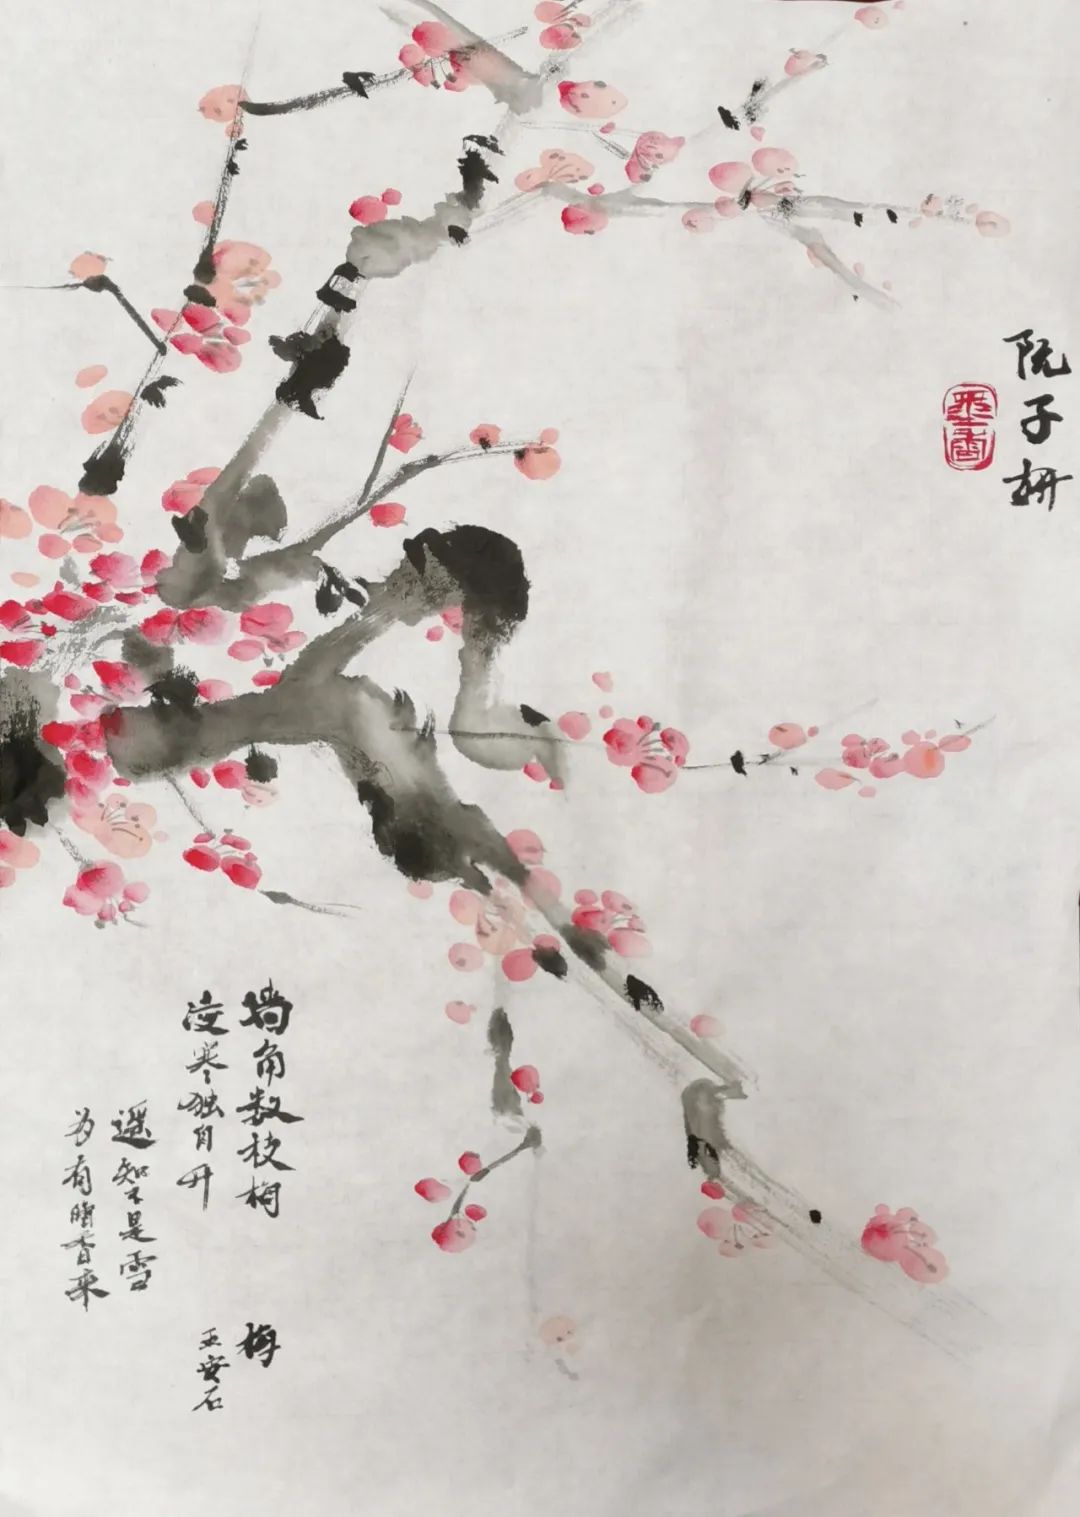 阮子
墨香
墙角数枝梅
凌寒独自开
遥知不是雪
为有暗香来
梅
王安石